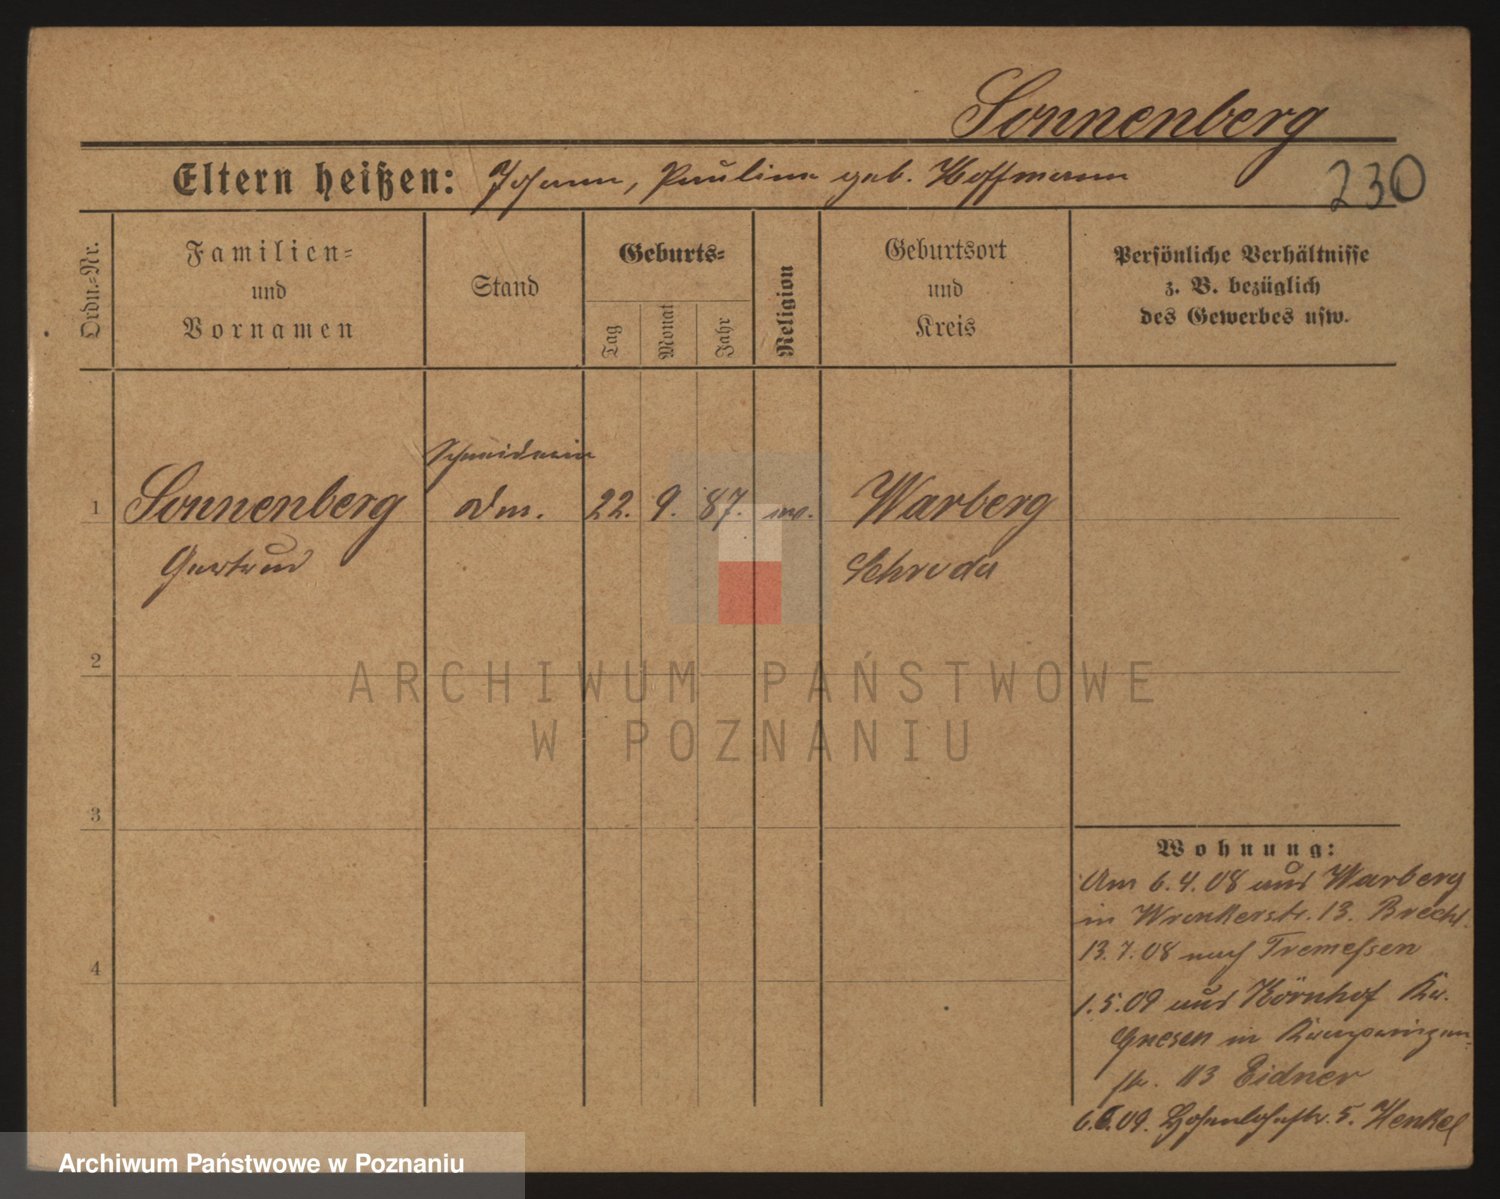 Sonnenberg
Eltern heißen: Johann, Pauline geb. Hoffmann
230
Ordn.-Nr.
Familien-
und
Vornamen
Stand
Geburts-
Tag
Monat
Jahr
Religion
Geburtsort
und
Kreis
Persönliche Verhältnisse
z. B. bezüglich
des Gewerbes usw.
Schneiderin
1 Sonnenberg 22. 9. 87. Warberg
Gertrud Schroda
2
ARCHIWUM PAŃSTWOWE
W POZNANIU
3
Wohnung:
Am 6.4.08 aus Warberg
in Wronkerstr. 13. Brecht.
13.7.08 nach Tremessen
4
1.5.09 aus Körnhof Kr.
Gnesen in
str. 113 Eidner
6.6.09. Hohenlohestr. 5. Henkel
Archiwum Państwowe w Poznaniu